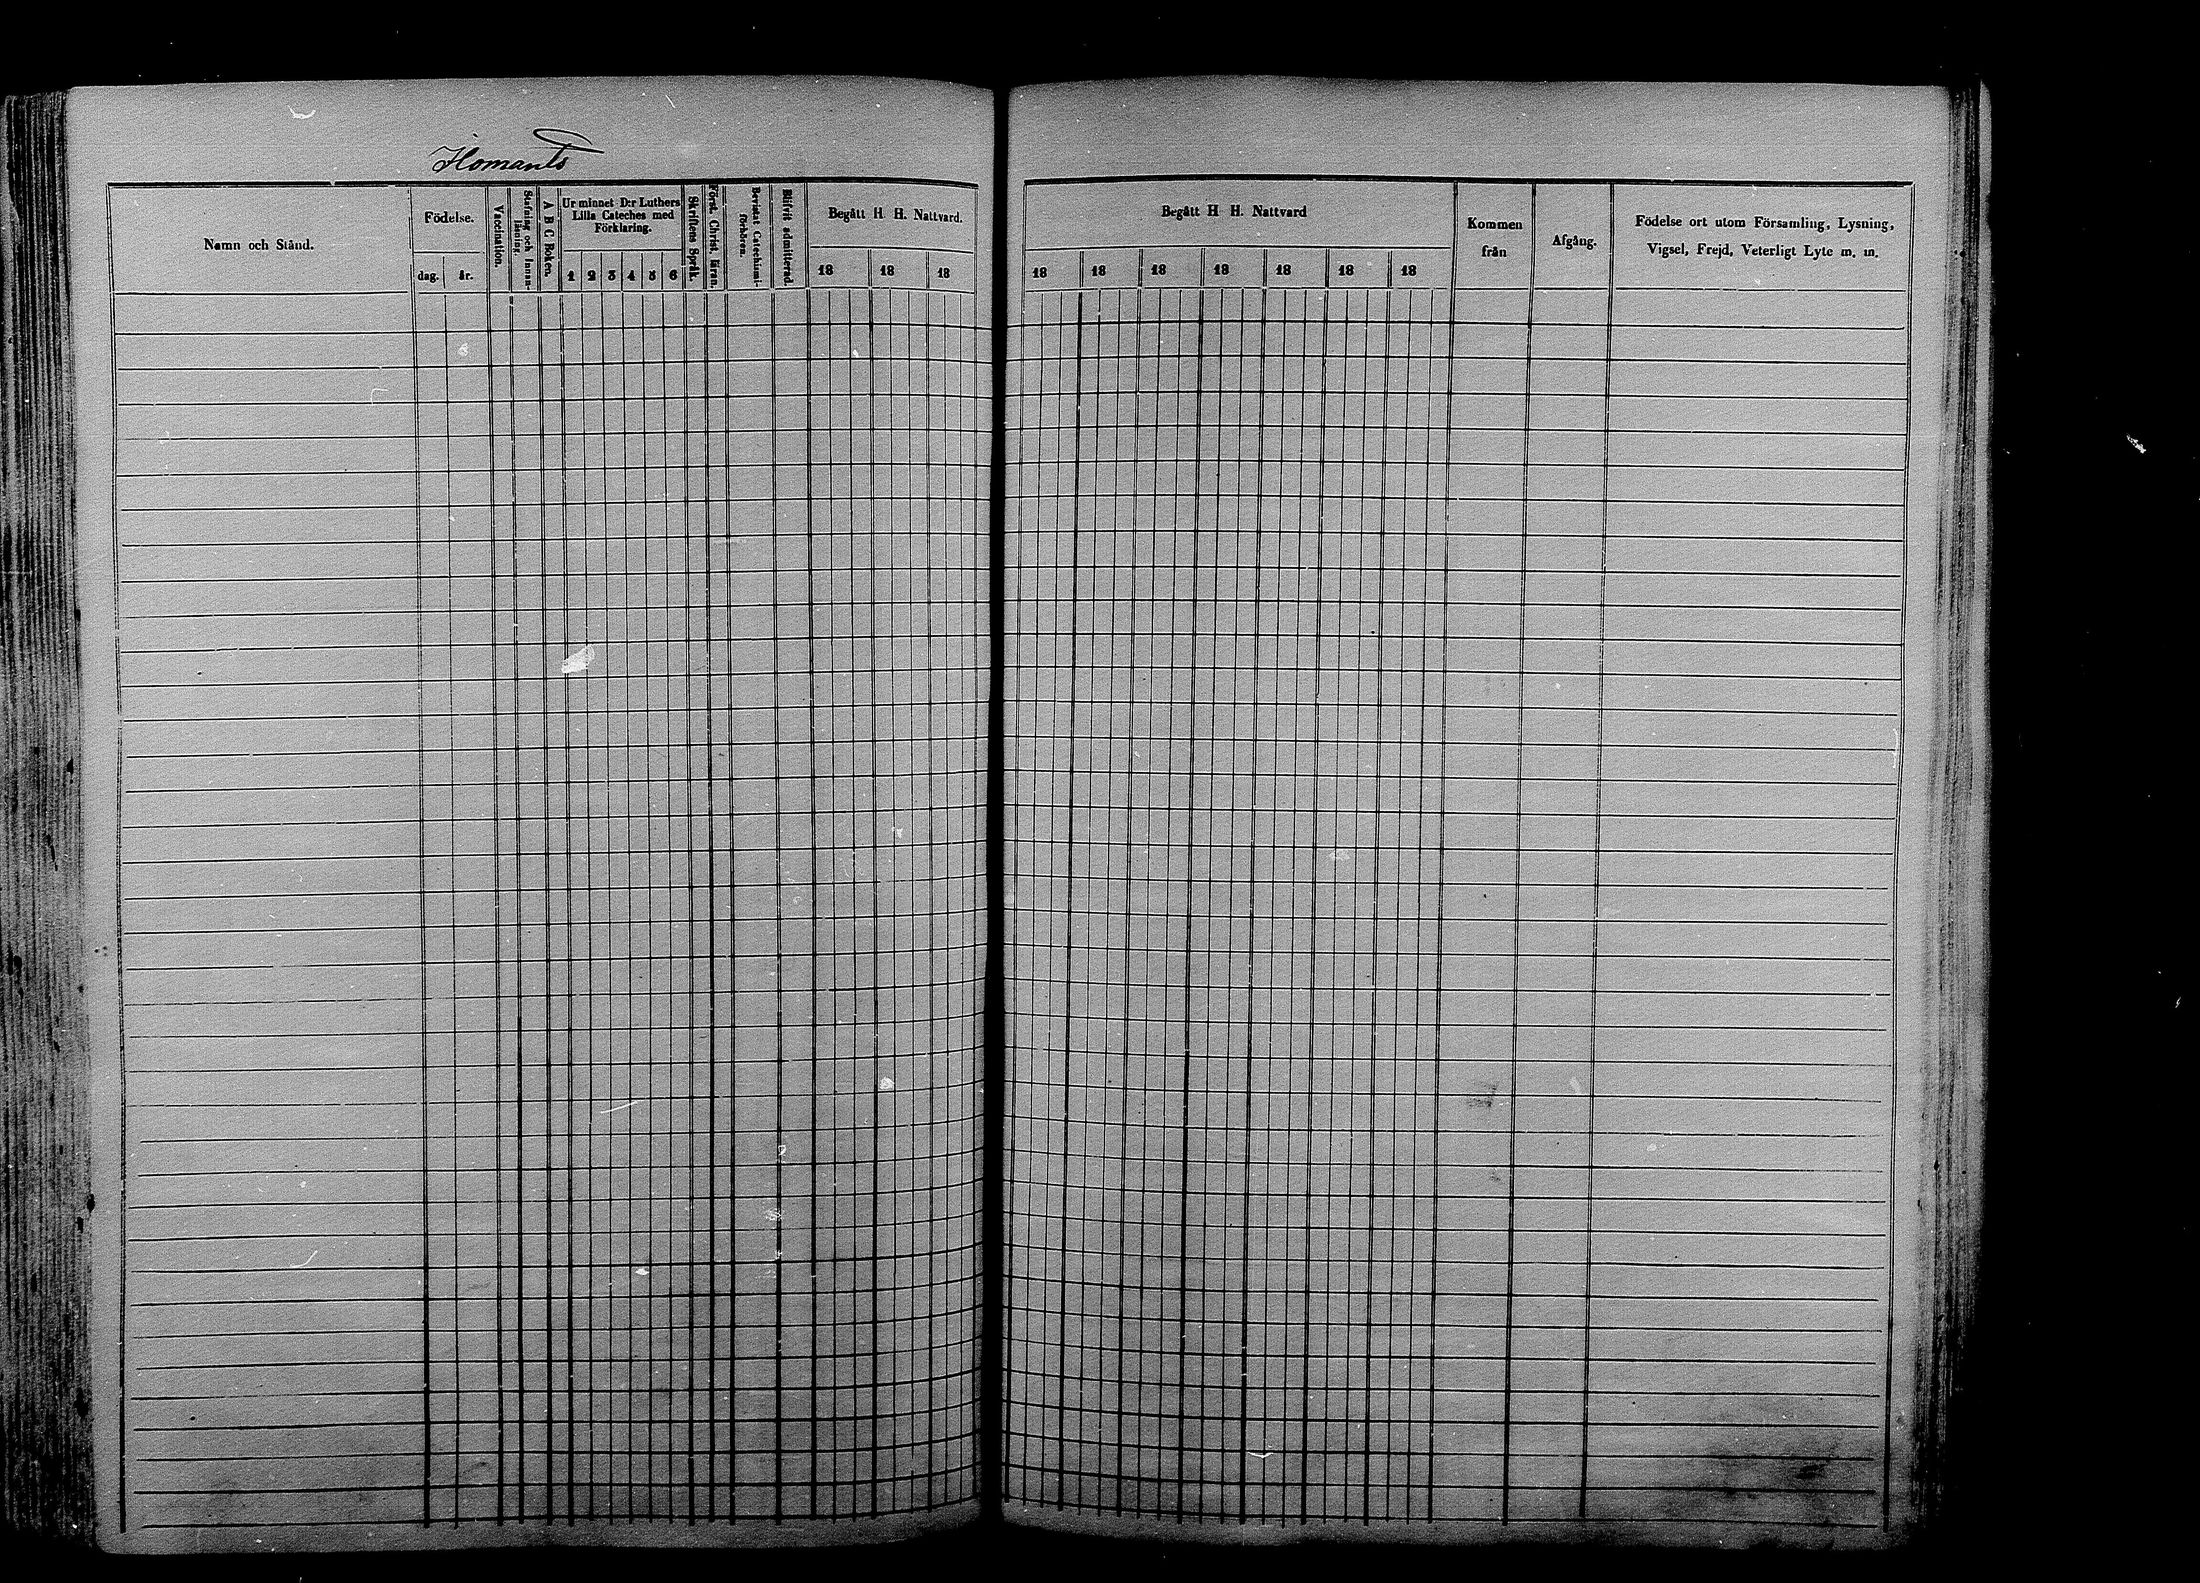 Ilomants
Namn och Stånd.
Födelse.
dag. år.
Vaccination.
Stafning och Innan-
läsning.
A B C Boken.
Ur minnet D:r Luthers
Lilla Cateches med
Förklaring.
1 2 3 4 5 6
Skriftens Språk.
Först. Christ. läran.
Bevista Catechismi-
förhören.
Blifvit admitterad.
Begått H. H. Nattvard.
18 18 18
Begått H H. Nattvard
18 18 18 18 18 18 18
Kommen
från
Afgång.
Födelse ort utom Församling, Lysning,
Vigsel, Frejd, Veterligt Lyte m. m.